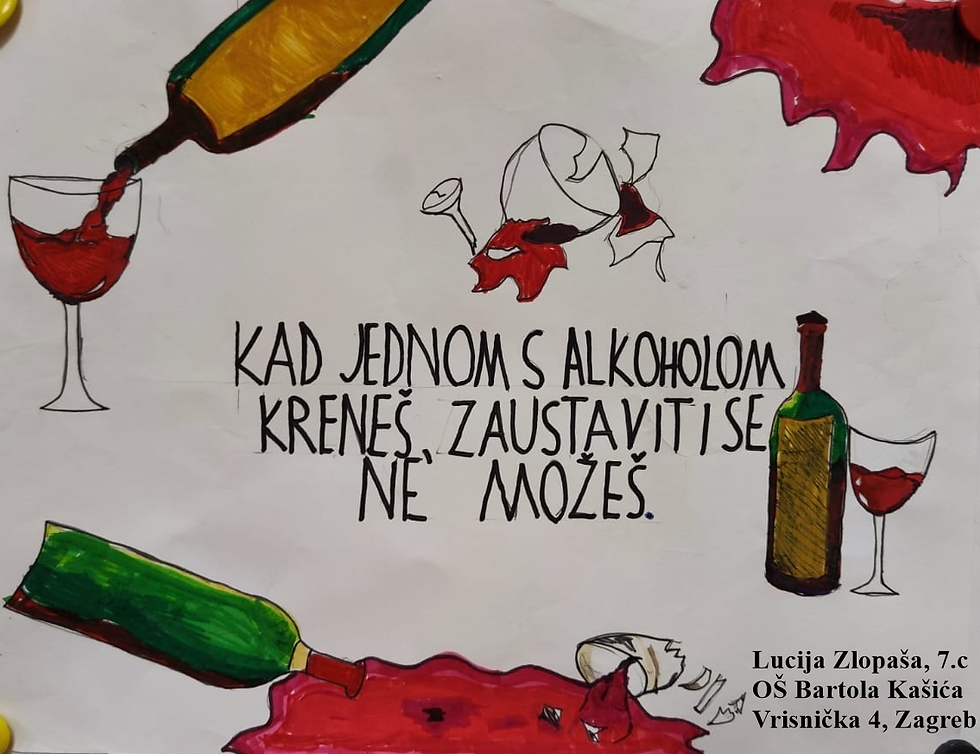 KAD JEDNOM S ALKOHOLOM
KRENEŠ, ZAUSTAVITI SE
NE MOŽEŠ.
Lucija Zlopaša, 7.c
OŠ Bartola Kašića
Vrisnička 4, Zagreb